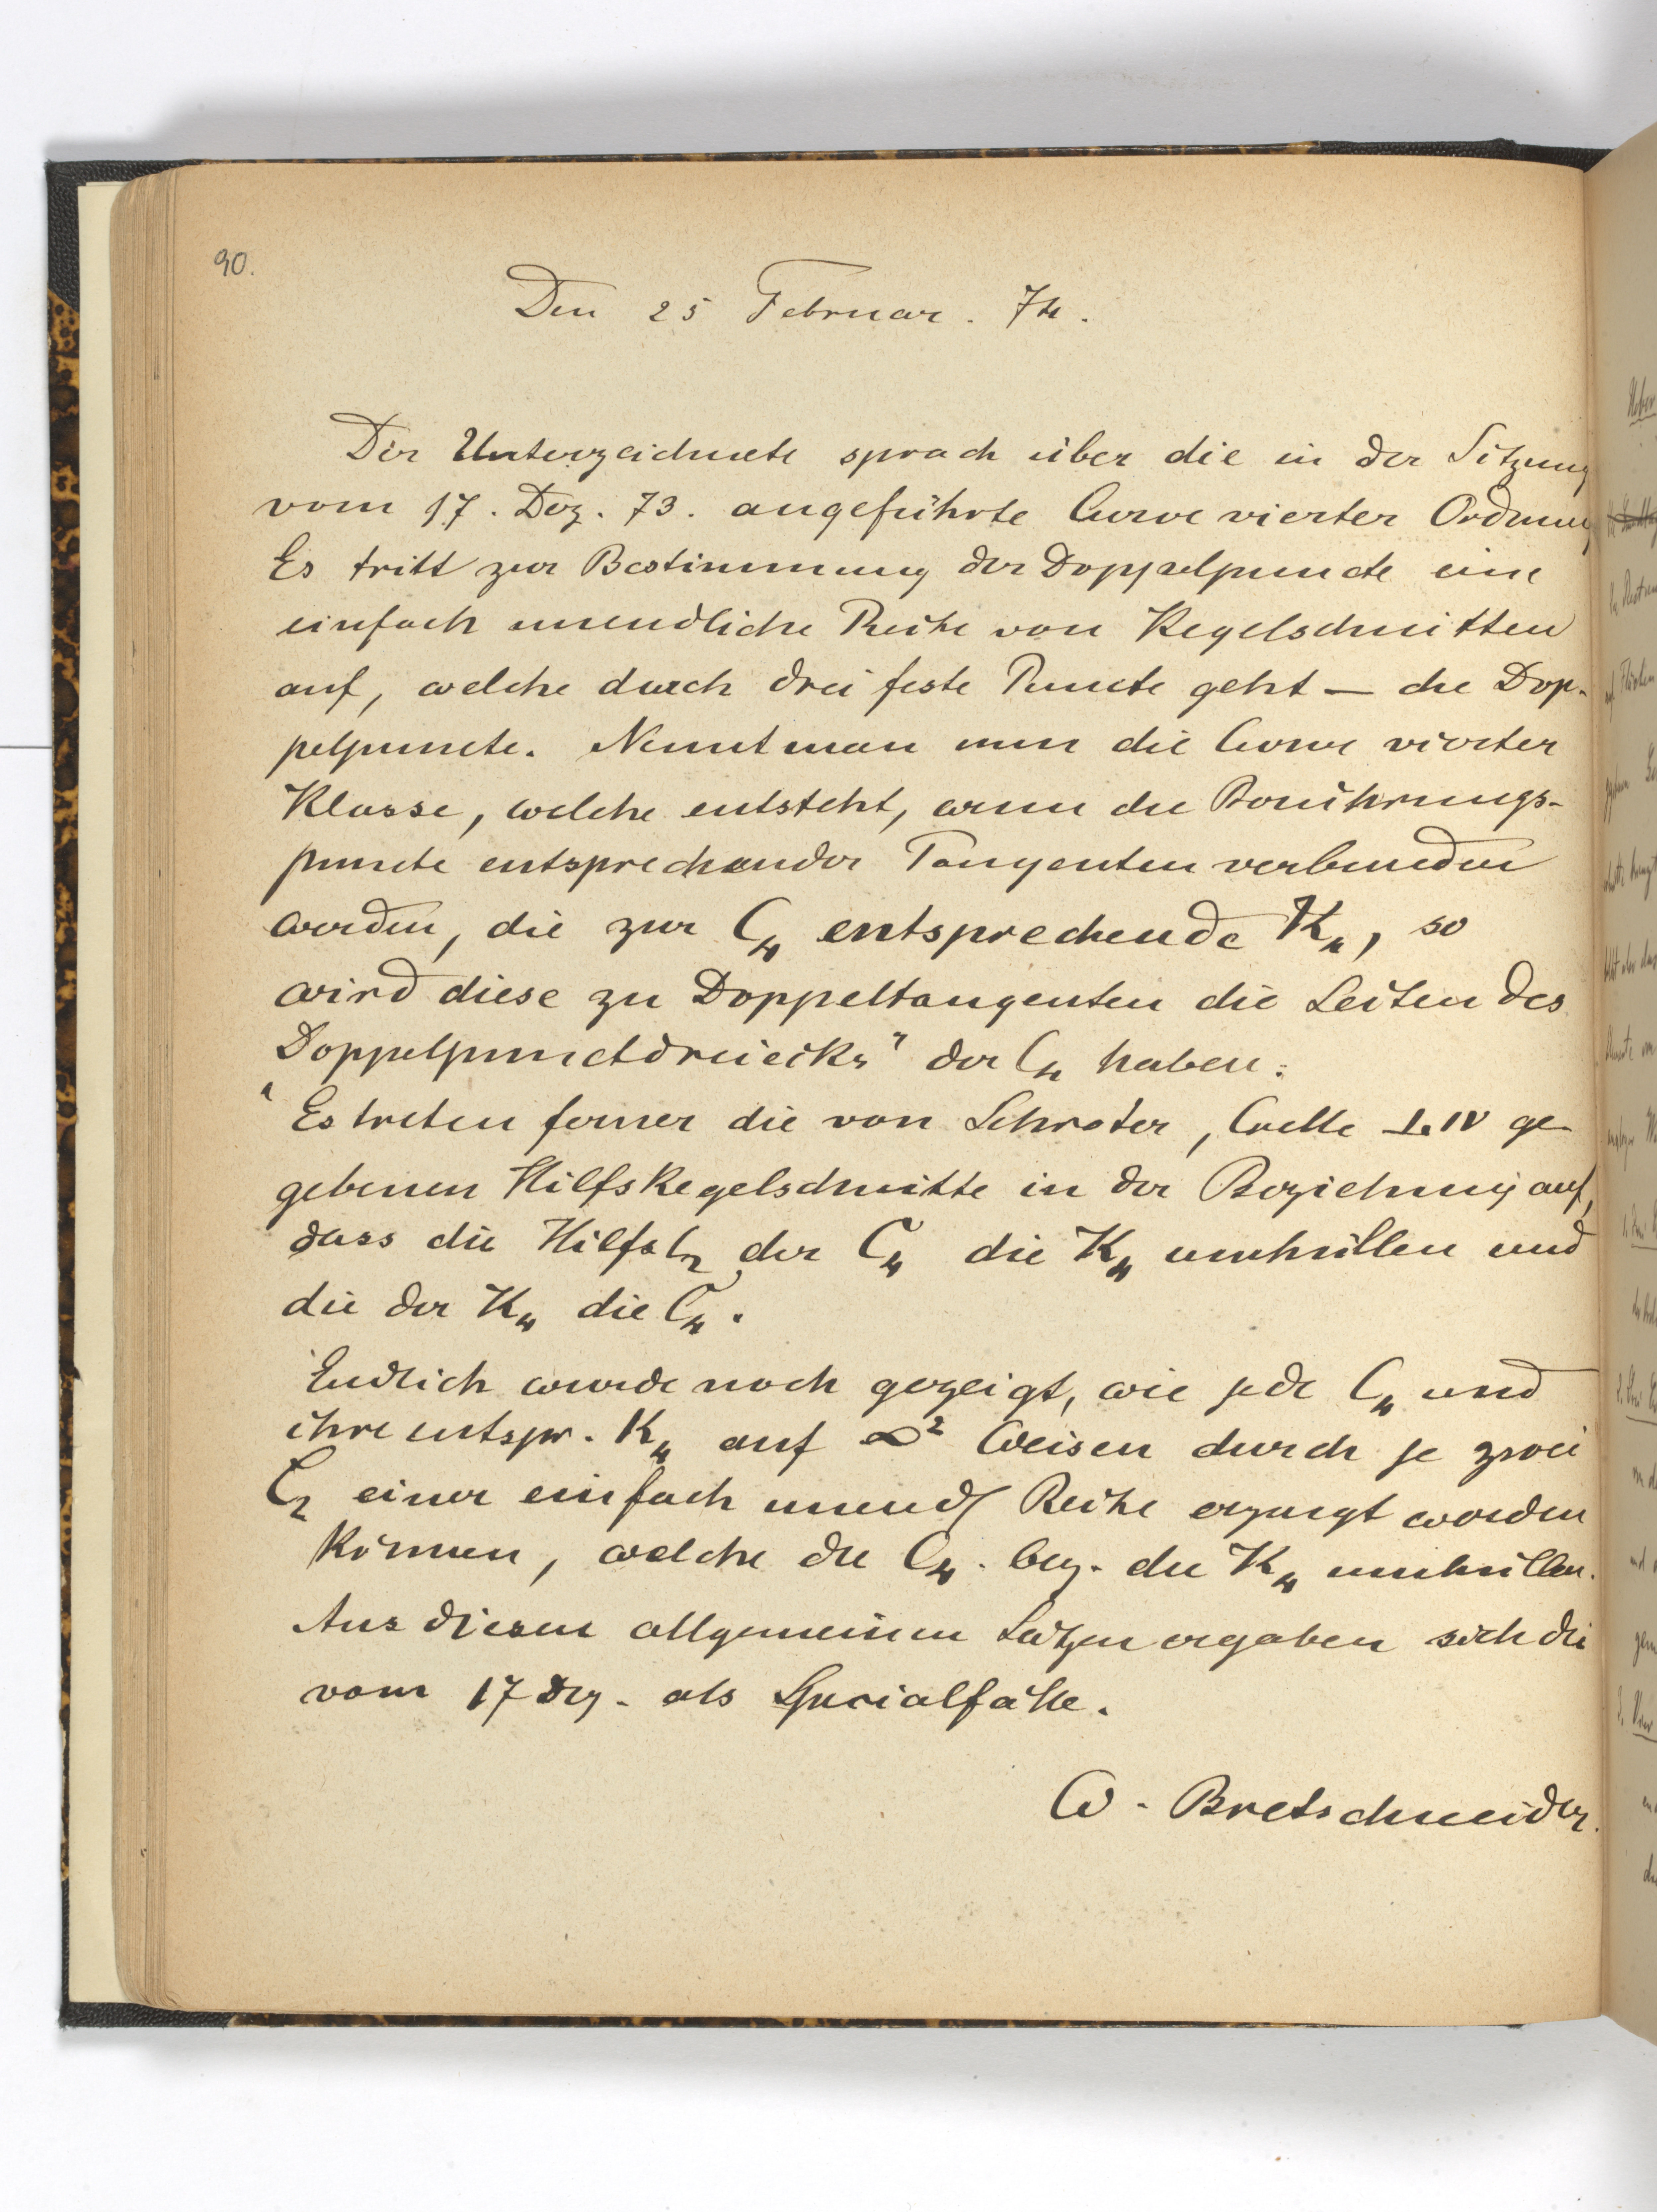 90.
Den 25 Februar. 74.
Der Unterzeichnete sprach über die in der Sitzung
vom 17. Dez. 73. angeführte Curve vierter Ordnung
Es tritt zur Bestimmung der Doppelpuncte eine
einfach unendliche Reihe von Kegelschnitten
auf, welche durch drei feste Puncte geht — die Dop-
pelpuncte. Nennt man nun die Curve vierter
Klasse, welche entsteht, wenn die Berührungs-
puncte entsprechender Tangenten verbunden
werden, die zur C₄ entsprechende K₄, so
wird diese zu Doppeltangenten die Seiten des
„Doppelpunctdreiecks" der C₄ haben.
Es treten ferner die von Schröter, Crelle LIV ge-
gebenen Hilfskegelschnitte in der Beziehung auf,
dass die Hilfsc₂ der C₄ die K₄ umhüllen und
die der K₄ die C₄.
Endlich wurde noch gezeigt, wie jede C₄ und
ihre entspr. K₄ auf ∞² Weisen durch je zwei
C₂ einer einfach unendl Reihe erzeugt werden
können, welche die C₄. bez. die K₄ umhüllen.
Aus diesen allgemeinen Sätzen ergaben sich die
vom 17 Dez. als Specialfälle.
W. Bretschneider.